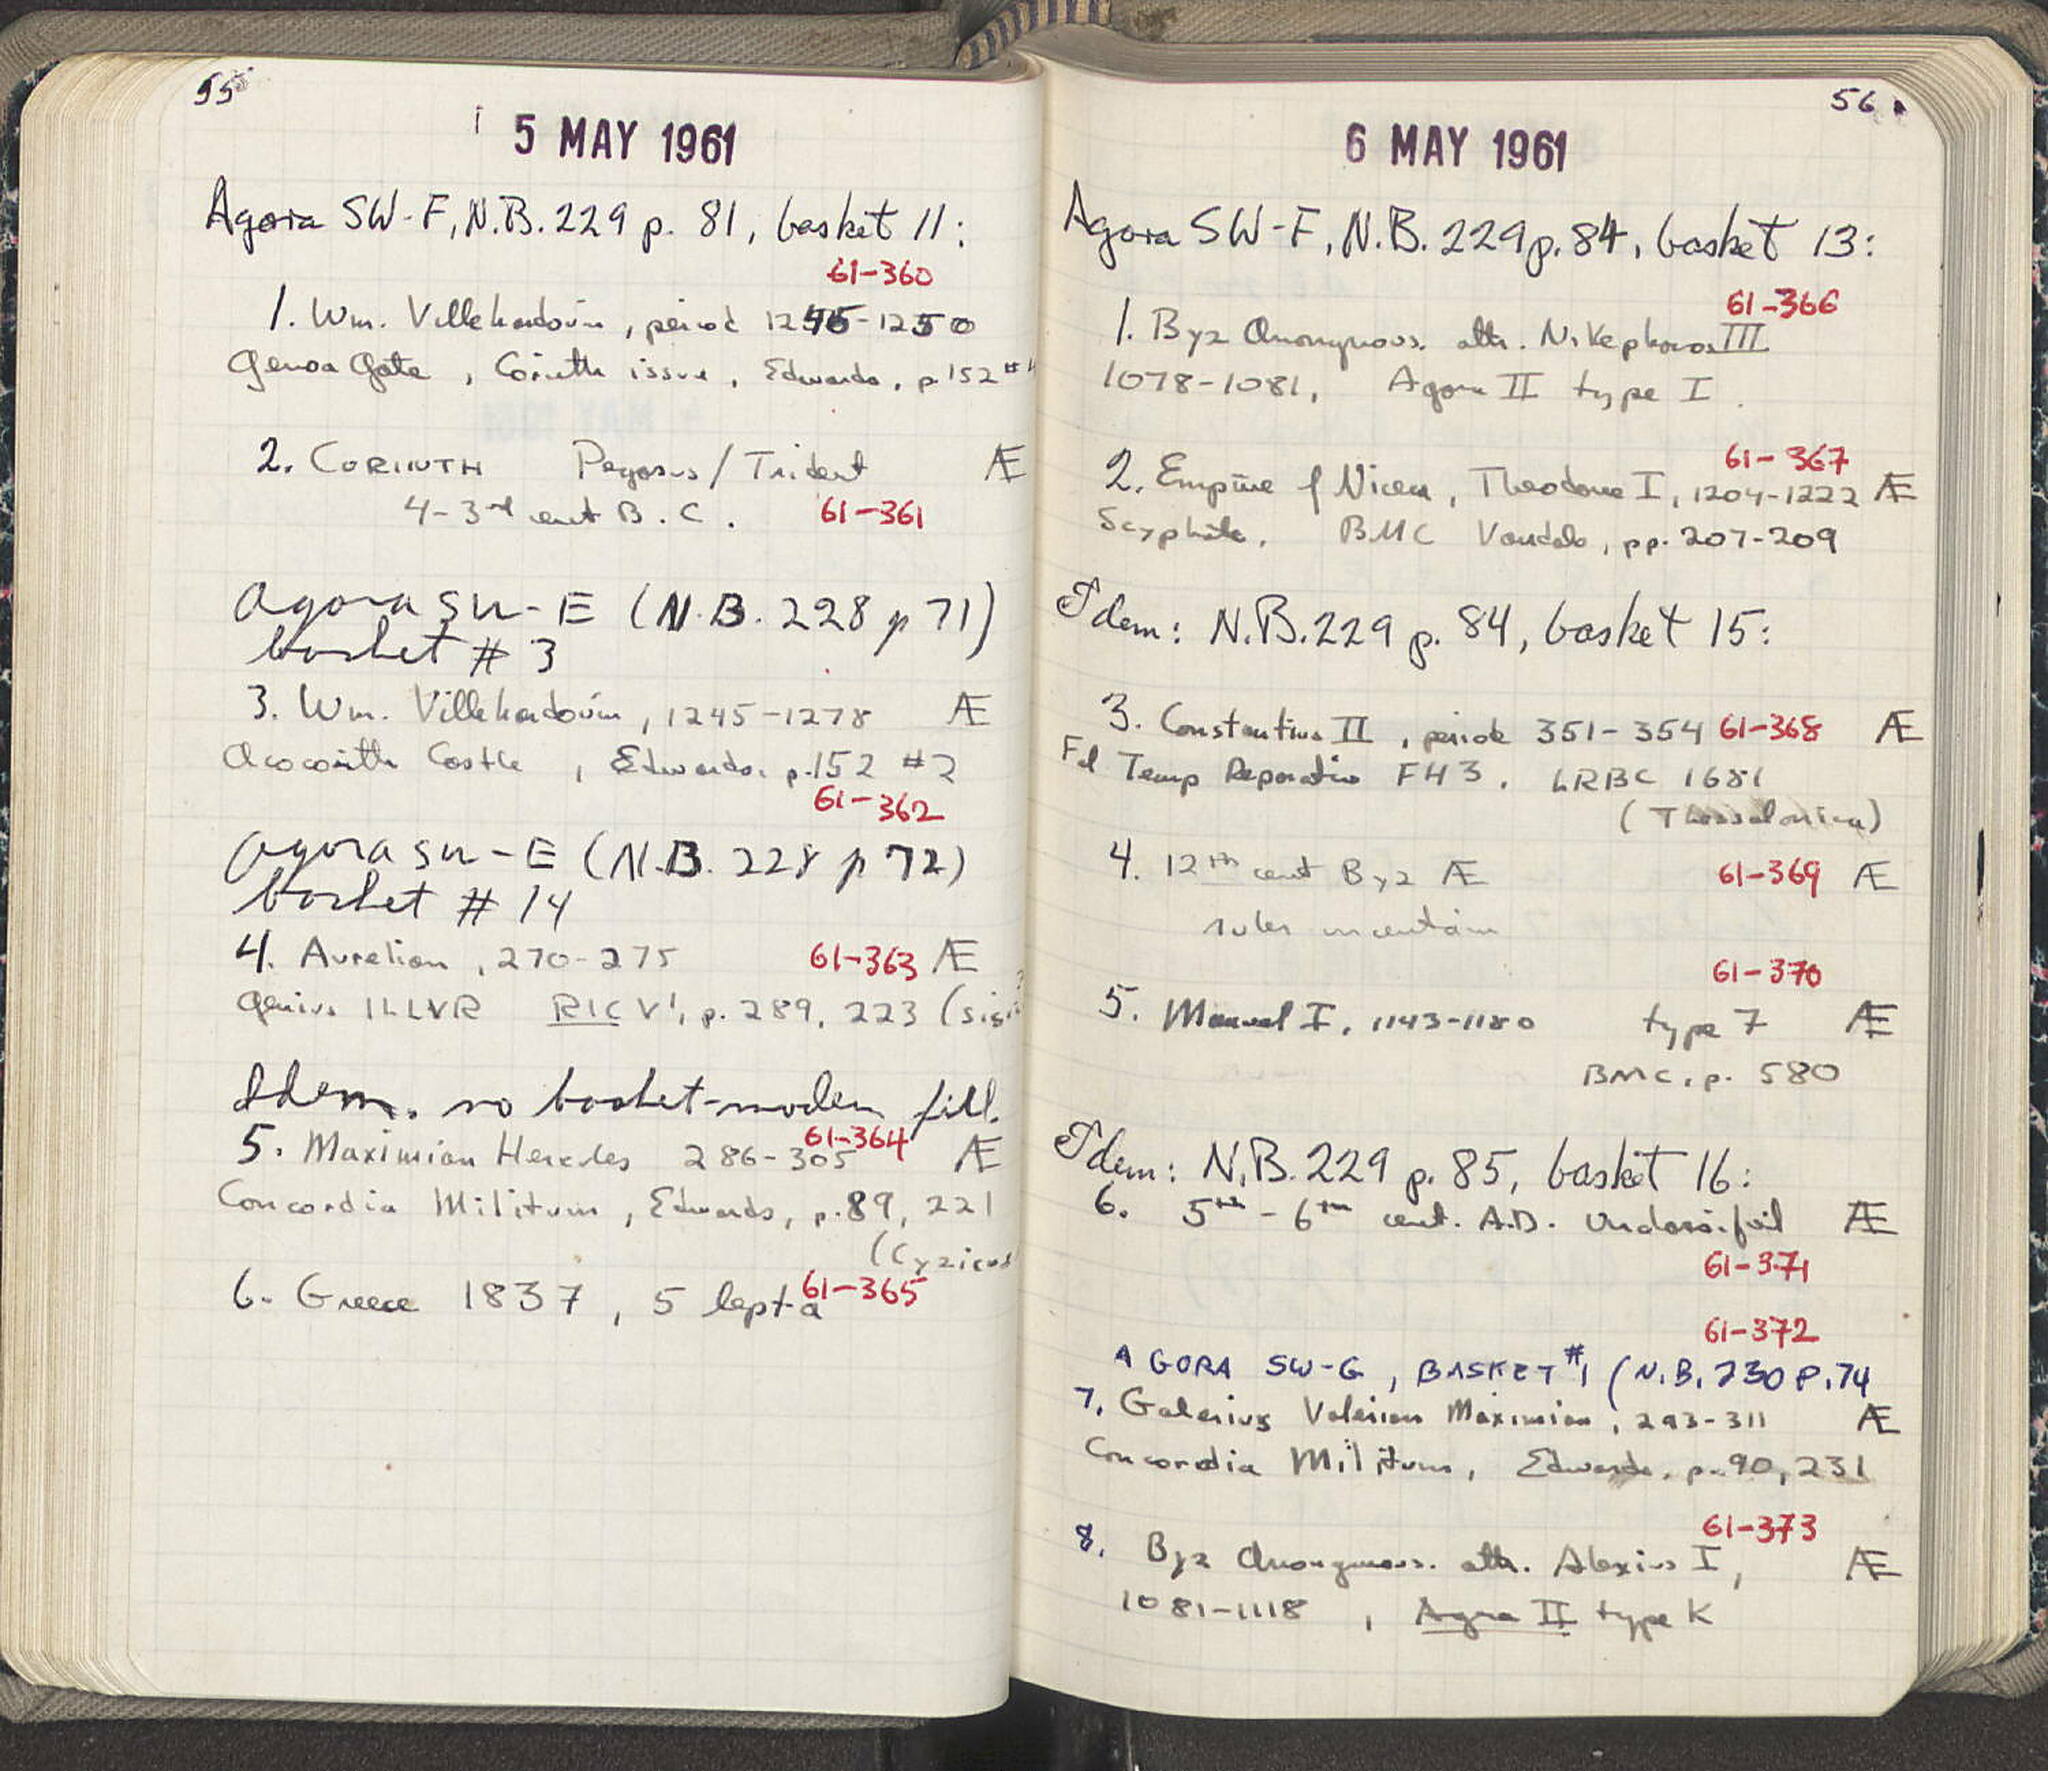 55
5 MAY 1961
Agora SW-F, N.B. 229 p. 81, basket 11:
61-360
1. Wm. Villehardouin, period 1245-1250
Genoa Gate, Corinth issue, Edwards, p. 152 #
2. CORINTH Pegasus/Trident Æ
4-3rd cent B.C. 61-361
Agora SW-E (N.B. 228 p 71)
basket # 3
3. Wm. Villehardouin, 1245-1278 Æ
Acocorinth Castle, Edwards, p. 152 #2
61-362
Agora SW-E (N.B. 228 p 72)
basket # 14
4. Aurelian, 270-275 61-363 Æ
Genius ILLVR RIC V¹, p. 289, 223
Idem. no basket-modern fill.
61-364
5. Maximian Hercules 286-305 Æ
Concordia Militum, Edwards, p. 89, 221
(Cyzicus
6. Greece 1837, 5 lepta 61-365
56
6 MAY 1961
Agora SW-F, N.B. 229 p. 84, basket 13:
61-366
1. Byz Anonymous. attr. Nikephoros III
1078-1081, Agora II type I.
61-367
2. Empire of Nicea, Theodore I, 1204-1222 Æ
Scyphate. BMC Vandals, pp. 207-209
Idem: N.B. 229 p. 84, basket 15:
3. Constantius II, period 351-354 61-368 Æ
Fel Temp Reparatio FH3. LRBC 1681
(Thessalonica)
4. 12th cent Byz Æ 61-369 Æ
ruler uncertain
61-370
5. Manuel I, 1143-1180 type 7 Æ
BMC, p. 580
Idem: N.B. 229 p. 85, basket 16:
6. 5th-6th cent. A.D. unclassified Æ
61-371
61-372
AGORA SW-G, BASKET #1 (N.B. 230 P. 74
7. Galerius Valerian Maximian, 293-311 Æ
Concordia Militum, Edwards, p. 90, 231
61-373
8. Byz Anonymous. attr. Alexius I, Æ
1081-1118, Agora II type K